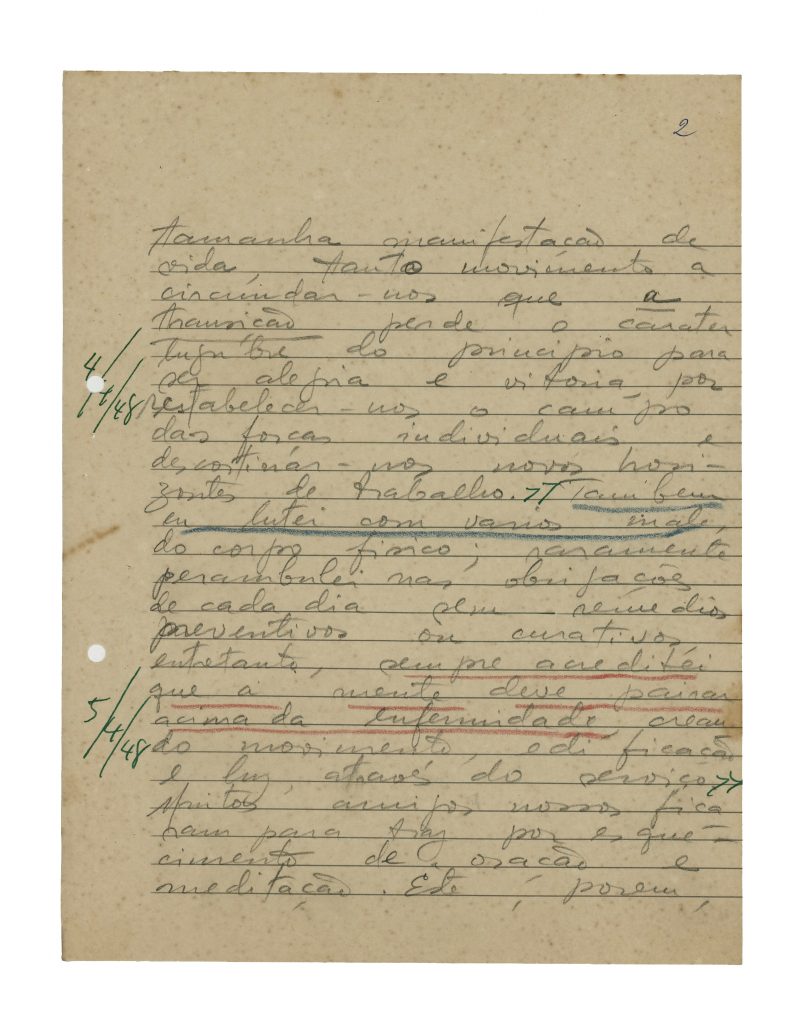 2
tamanha manifestação de
vida, tanto movimento a
circundar-nos que a
transição perde o carater
lugubre do principio para
ser alegria e vitoria, por
restabelecer-nos o campo
das forças individuais e
descortinar-nos novos hori-
zontes de trabalho. Tambem
eu lutei com varios males
do corpo fisico; raramente
perambulei nas obrigações
de cada dia sem remedios
preventivos ou curativos
entretanto, sempre acreditei
que a mente deve pairar
acima da enfermidade, crean
do movimento, edificação
e luz, através do serviço.
Muitos amigos nossos fica
ram para traz por esque-
cimento de oração e
meditação. Este, porem,
4/4/48
5/4/48